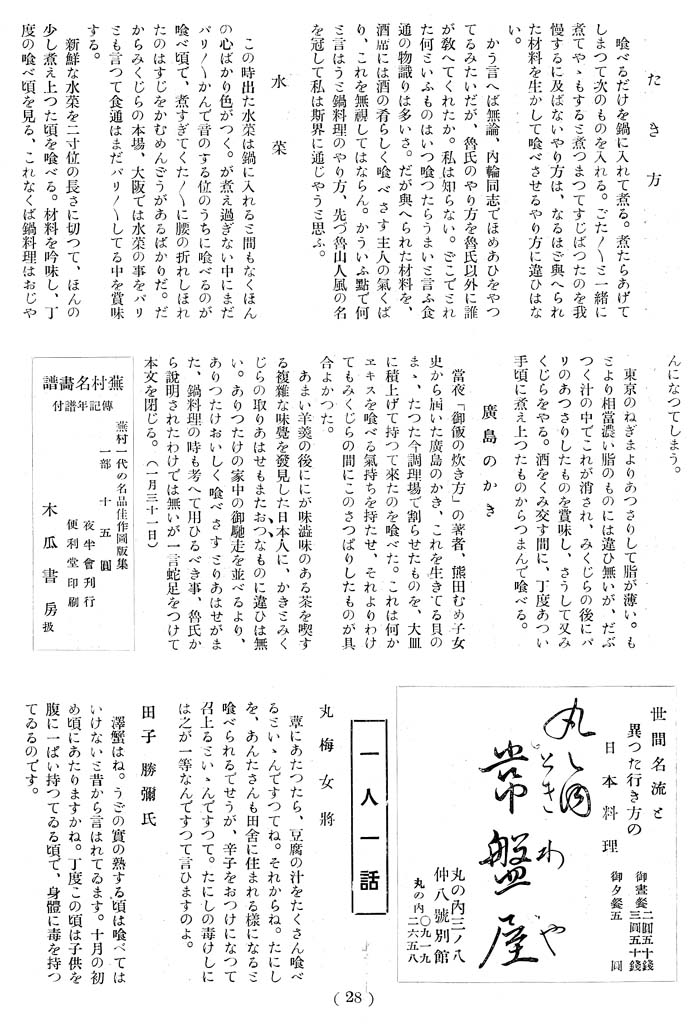 たき方
喰べるだけを鍋に入れて煮る。煮たらあげて
しまつて次のものを入れる。ごた〱と一緒に
煮てやゝもすると煮つまつてすじばつたのを我
慢するに及ばないやり方は、なるほど與へられ
た材料を生かして喰べさせるやり方に違ひはな
い。
かう言へば無論、內輪同志でほめあひをやつ
てるみたいだが、魯氏のやり方を魯氏以外に誰
が敎へてくれたか。私は知らない。どこでとれ
た何といふものはいつ喰つたらうまいと言ふ食
通の物識りは多いさ。だが與へられた材料を、
酒席には酒の肴らしく喰べさす主人の氣くば
り、これを無視してはならん。かういふ點で何
と言はうと鍋料理のやり方、先づ魯山人風の名
を冠して私は斯界に通じやうと思ふ。
水菜
この時出た水菜は鍋に入れると間もなくほん
の心ばかり色がつく。が煮え過ぎない中にまだ
バリ〱かんで音のする位のうちに喰べるのが
喰べ頃で、煮すぎてくた〱に腰の折れしほれ
たのはすじをかむめんどうがあるばかりだ。だ
からみくじらの本場、大阪では水菜の事をバリ
とも言つて食通はまだバリ〱してる中を賞味
する。
新鮮な水菜を二寸位の長さに切つて、ほんの
少し煮え上つた頃を喰べる。材料を吟味し、丁
度の喰べ頃を見る、これなくば鍋料理はおじや
んになつてしまう。
東京のねぎまよりあつさりして脂が薄い。も
とより相當濃い脂のものには違ひ無いが、だぶ
つく汁の中でこれが消され、みくじらの後にバ
リのあつさりしたものを賞味し、さうして又み
くじらをやる。酒をくみ交す間に、丁度あつい
手頃に煮え上つたものからつまんで喰べる。
廣島のかき
當夜「御飯の炊き方」の著者、熊田むめ子女
史から屆いた廣島のかき、これを生きてる貝の
まゝ、たつた今調理場で割らせたものを、大皿
に積上げて持つて來たのを喰べた。これは何か
ヱキスを喰べる氣持ちを持たせ、それよりわけ
てもみくじらの間にこのさつぱりしたものが具
合よかつた。
あまい羊羹の後ににが味澁味のある茶を喫す
る複雜な味覺を發見した日本人に、かきとみく
じらの取りあはせもまたおつなものに違ひは無
い。ありつたけの家中の御馳走を並べるより、
ありつたけおいしく喰べさすとりあはせがま
た、鍋料理の時も考へて用ひるべき事、魯氏か
ら說明されたわけでは無いが一言蛇足をつけて
本文を閉じる。(一月三十一日)
蕪村名畫譜
傳記年譜付
蕪村一代の名品佳作圖版集
一部 十五圓
夜半會刊行
便利堂印刷
木瓜書房扱
世間名流と
異つた行き方の
日本料理
御晝餐 二圓五十錢
三圓五十錢
御夕餐 五圓
丸の內
ときわや
常盤屋
丸の內三ノ八
仲八號別館
丸の內 〇九一九
二六五八
一人一話
丸梅女將
蕈にあたつたら、豆腐の汁をたくさん喰べ
るといゝんですつてね。それからね。たにし
を、あんたさんも田舍に住まれる樣になると
喰べられるでせうが、辛子をおつけになつて
召上るといゝんですつて。たにしの毒けしに
は之が一等なんですつて言ひますのよ。
田子勝彌氏
澤蟹はね。うどの實の熟する頃は喰べては
いけないと昔から言はれてゐます。十月の初
め頃にあたりますかね。丁度この頃は子供を
腹に一ぱい持つてゐる頃で、身體に毒を持つ
てゐるのです。
( 28 )